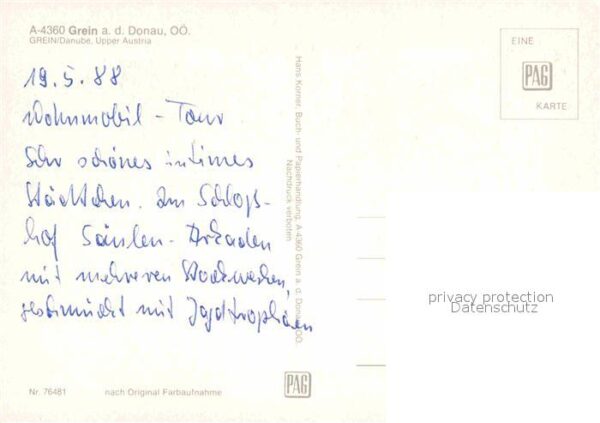 A-4360 Grein a. d. Donau, OÖ.
GREIN/Danube, Upper Austria
19.5.88
Wohnmobil - Tour
Sehr schönes intimes
Städtchen. Im Schloß-
hof Säulen-Arkaden
mit mehreren Stockwerken,
geschmückt mit Jagdtrophäen
Hans Korner, Buch- und Papierhandlung, A-4360 Grein a. d. Donau, OÖ.
Nachdruck verboten
EINE
PAG
KARTE
privacy protection
Datenschutz
Nr. 76481
nach Original Farbaufnahme
PAG